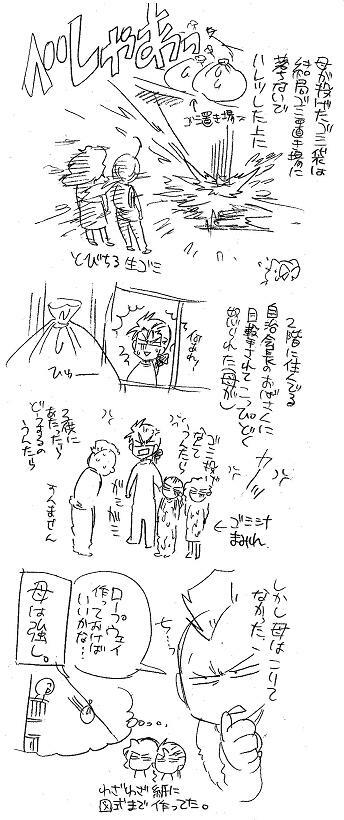 べしゃあっ
母が投げたゴミ袋は
結局ゴミ置き場に
落ちないで
ハレツした上に
ゴミ置き場
とびちる生ゴミ
2階に住んでる
自治会長のおばさんに
目撃されてこっぴどく
怒られた(母が)
なあっ
ひゅー
ガミ
ガミ
ゴミ投
げて
うんたら
2歳に
あたったら
どーするの
うんたら
すんません
←ゴミ汁
まみれ
しかし母はこりて
なかった、
チ…っ
ロープウェイ
作っておけば
いいかな…
母は強し。
わざわざ紙に
図式まで作ってた。